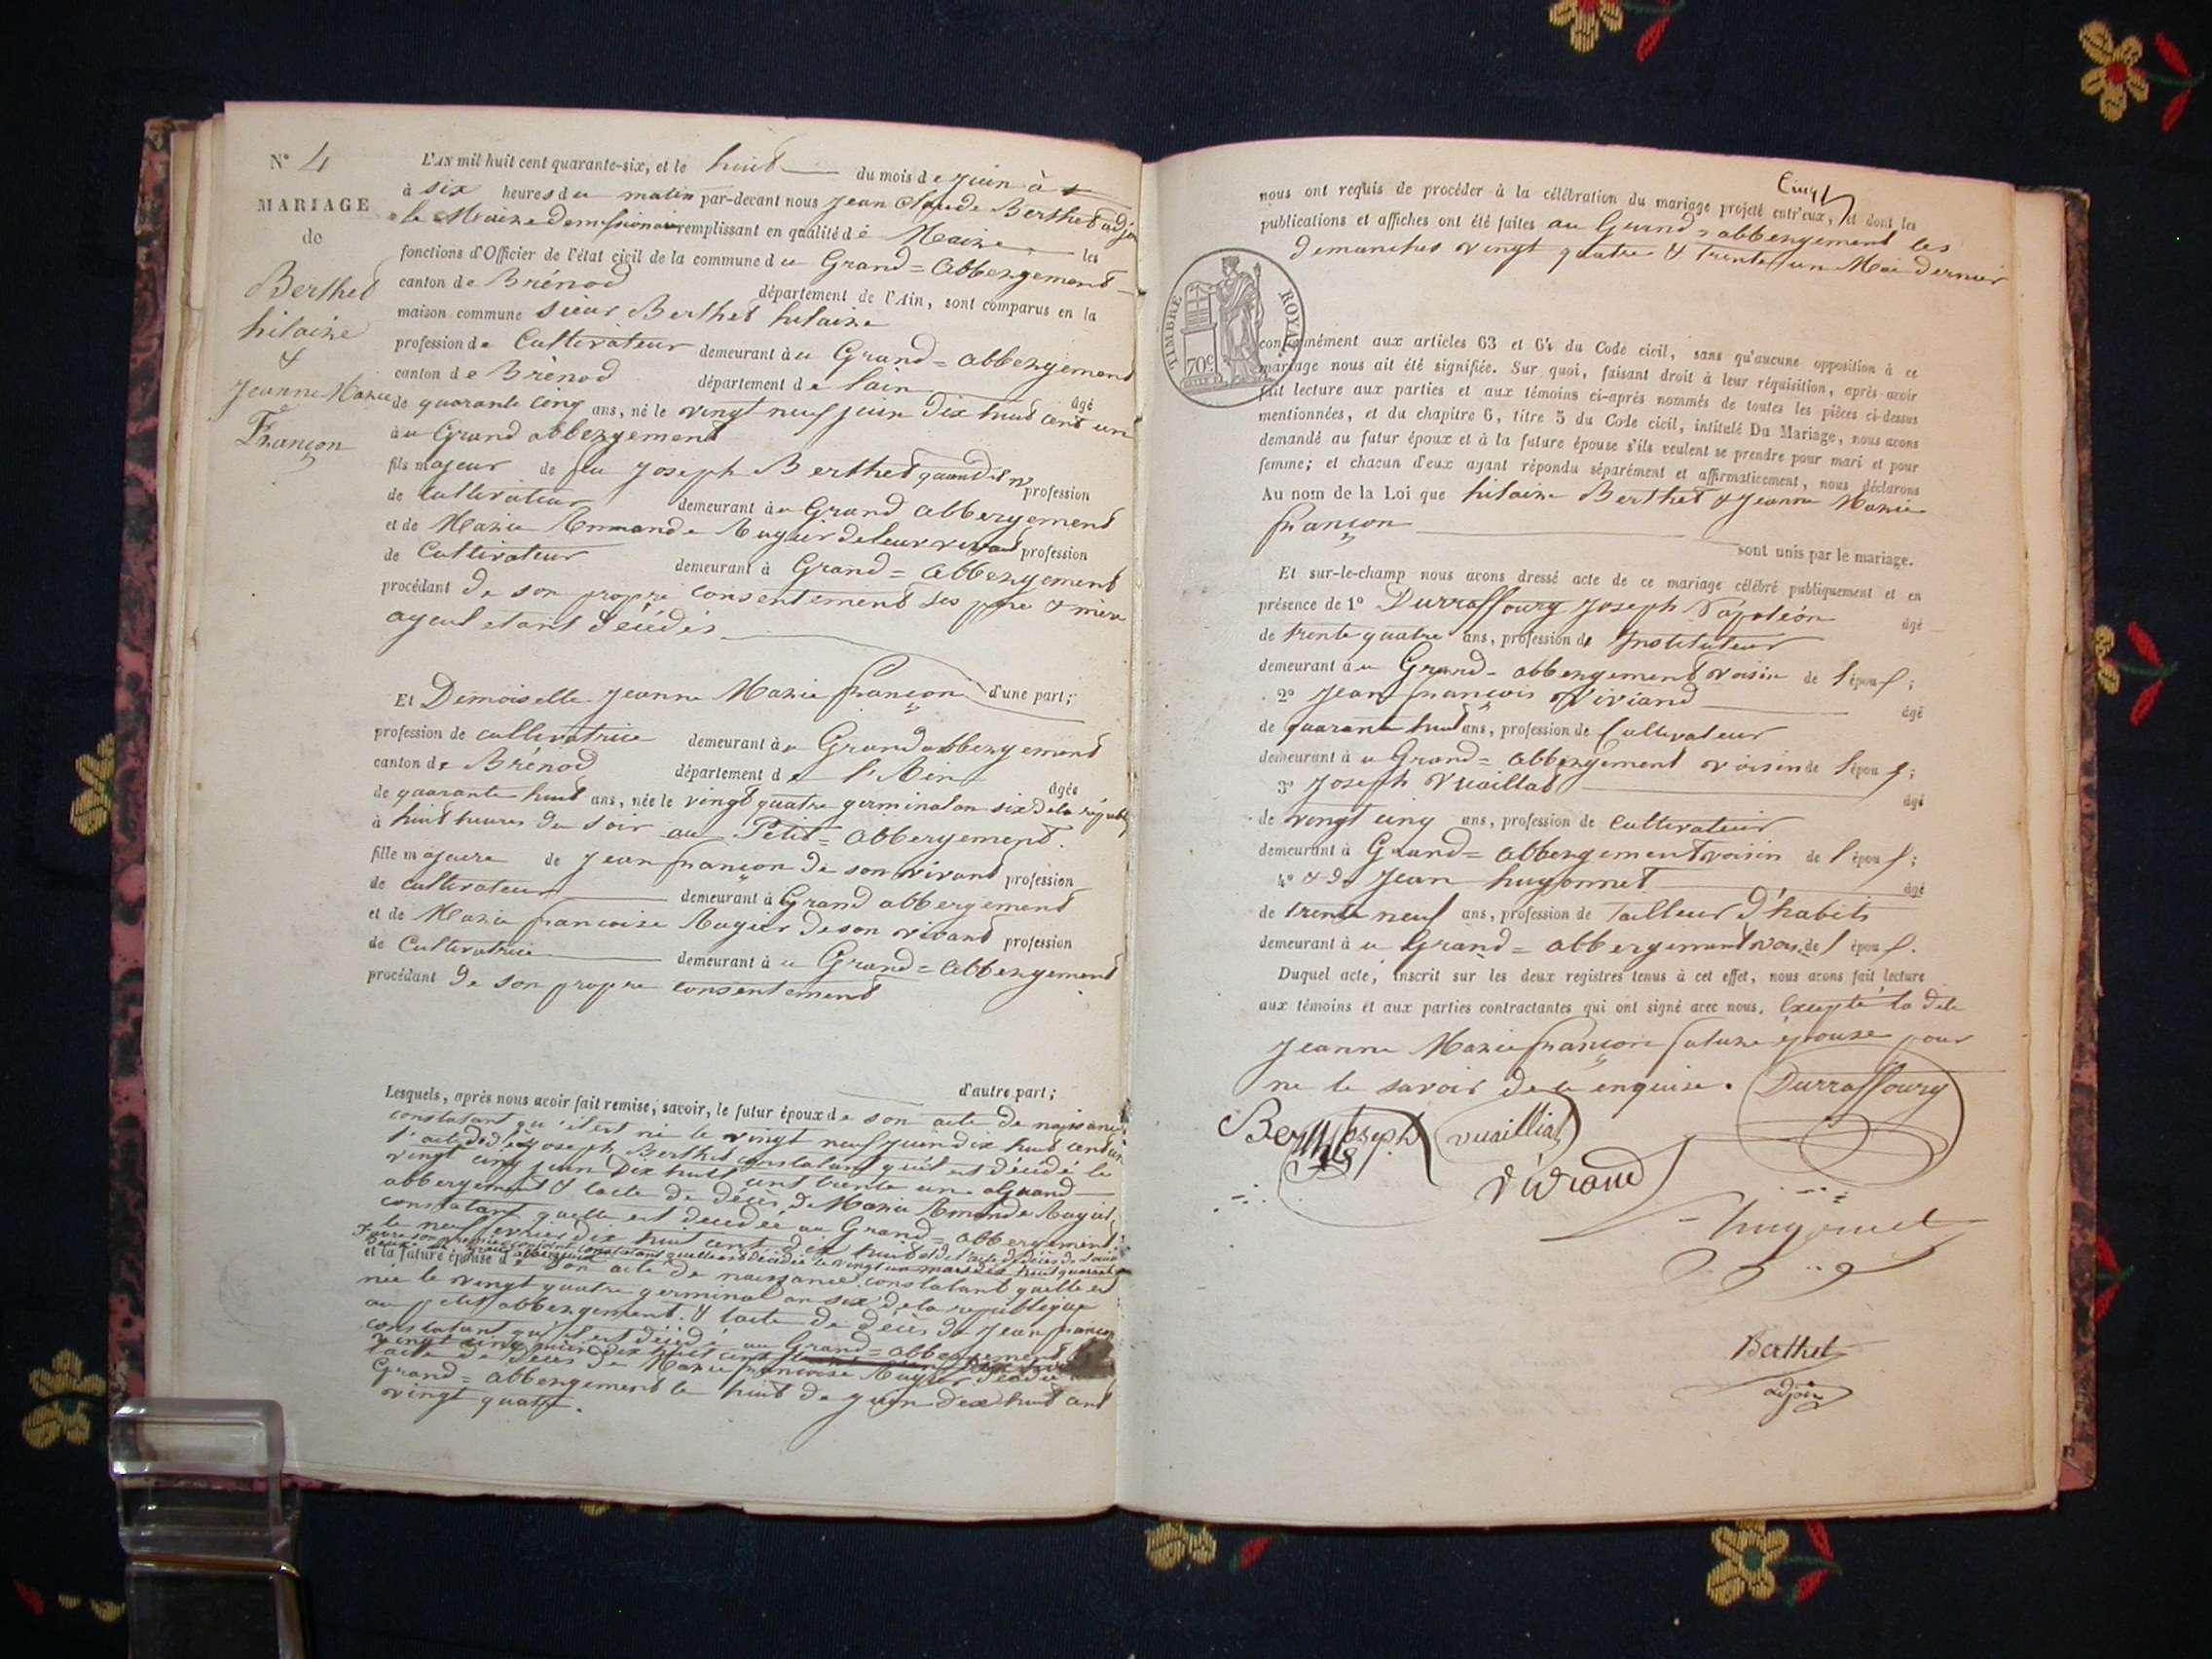 N° 4
MARIAGE
de
Berthet
hilaire
&
Jeanne Marie
Françon
L'AN mil huit cent quarante-six, et le huit du mois de juin à
à six heures du matin par-devant nous Jean Claude Berthet adjt
le Maire demissionaire remplissant en qualité de Maire les
fonctions d'Officier de l'état civil de la commune du Grand=abbergement
canton de Brénod département de l'Ain, sont comparus en la
maison commune sieur Berthet hilaire
profession de Cultivateur demeurant à u Grand=abbergement
canton de Brénod département de l'ain âgé
de quarante cinq ans, né le vingt neuf juin dix huit cent un
à u Grand abbergement
fils majeur de feu Joseph Berthet quand il v profession
de cultivateur demeurant à u Grand abbergement
et de Marie Armande Rugier de leur vivant profession
de Cultivateur demeurant à Grand=abbergement
procédant de son propre consentement ses père & mère
ayeul etant décédés
d'une part;
Et Demoiselle Jeanne Marie françon
profession de cultivatrice demeurant à u Grand abbergement
canton de Brénod département de l'Ain âgée
de quarante huit ans, née le vingt quatre germinal an six de la républ
à huit heures du soir au Petit=abbergement.
fille majeure de Jean françon de son vivant profession
de cultivateur demeurant à Grand abbergement
et de Marie francoise Rugier de son vivant profession
de Cultivatrice demeurant à u Grand=abbergement
procédant de son propre consentement
d'autre part;
Lesquels, après nous avoir fait remise, savoir, le futur époux de son acte de naissance
constatant qu'il est né le vingt neuf juin dix huit cent un
l'acte de décès Joseph Berthet constatant qu'il est décédé le
vingt cinq juin dix huit cent trente un a Grand
abbergement & l'acte de décès de Marie Armande Rugier
constatant quelle est decedée au Grand=abbergement
le neuf fevrier dix huit cent dix huit
constatant quelle est décédée le vingt un mars dix huit quarante
et la future épouse de son acte de naissance constatant quelle est
née le vingt quatre germinal an six de la république
au petit abbergement. & l'acte de décès de Jean françon
constatant qu'il est décédé au Grand=abbergement
vingt cinq juin dix huit cent
l'acte de décès de Marie francoise Rugier décédée
Grand=abbergement le huit de juin dix huit cent
vingt quatre.
Cinq
nous ont requis de procéder à la célébration du mariage projeté entr'eux, et dont les
publications et affiches ont été faites au Grand=abbergement les
dimanches vingt quatre & trente un Mai dernier
TIMBRE ROYAL
70c
conformément aux articles 63 et 64 du Code civil, sans qu'aucune opposition à ce
mariage nous ait été signifiée. Sur quoi, faisant droit à leur réquisition, après avoir
fait lecture aux parties et aux témoins ci-après nommés de toutes les pièces ci-dessus
mentionnées, et du chapitre 6, titre 5 du Code civil, intitulé Du Mariage, nous avons
demandé au futur époux et à la future épouse s'ils veulent se prendre pour mari et pour
femme; et chacun d'eux ayant répondu séparément et affirmativement, nous déclarons
Au nom de la Loi que hilaire Berthet & Jeanne Marie
françon
sont unis par le mariage.
Et sur-le-champ nous avons dressé acte de ce mariage célébré publiquement et en
présence de 1° Durraffourg Joseph Napoléon âgé
de trente quatre ans, profession de Instituteur
demeurant à u Grand-abbergement voisin de l'époux;
2° Jean françois Viviand âgé
de quarante huit ans, profession de Cultivateur
demeurant à u Grand=abbergement voisin de l'époux;
3° Joseph Vuaillat âgé
de vingt cinq ans, profession de cultivateur
demeurant à Grand=abbergement voisin de l'époux;
4° & de Jean hugonnet âgé
de trente neuf ans, profession de Tailleur d'habits
demeurant à u Grand=abbergement vois. de l'époux.
Duquel acte, inscrit sur les deux registres tenus à cet effet, nous avons fait lecture
aux témoins et aux parties contractantes qui ont signé avec nous, Excepté la dite
Jeanne Marie françon future épouse pour
ne le savoir de ce enquise. Durraffourg
Berthet joseph vuailliat
viviand
hugonnet
Berthet
adjoin